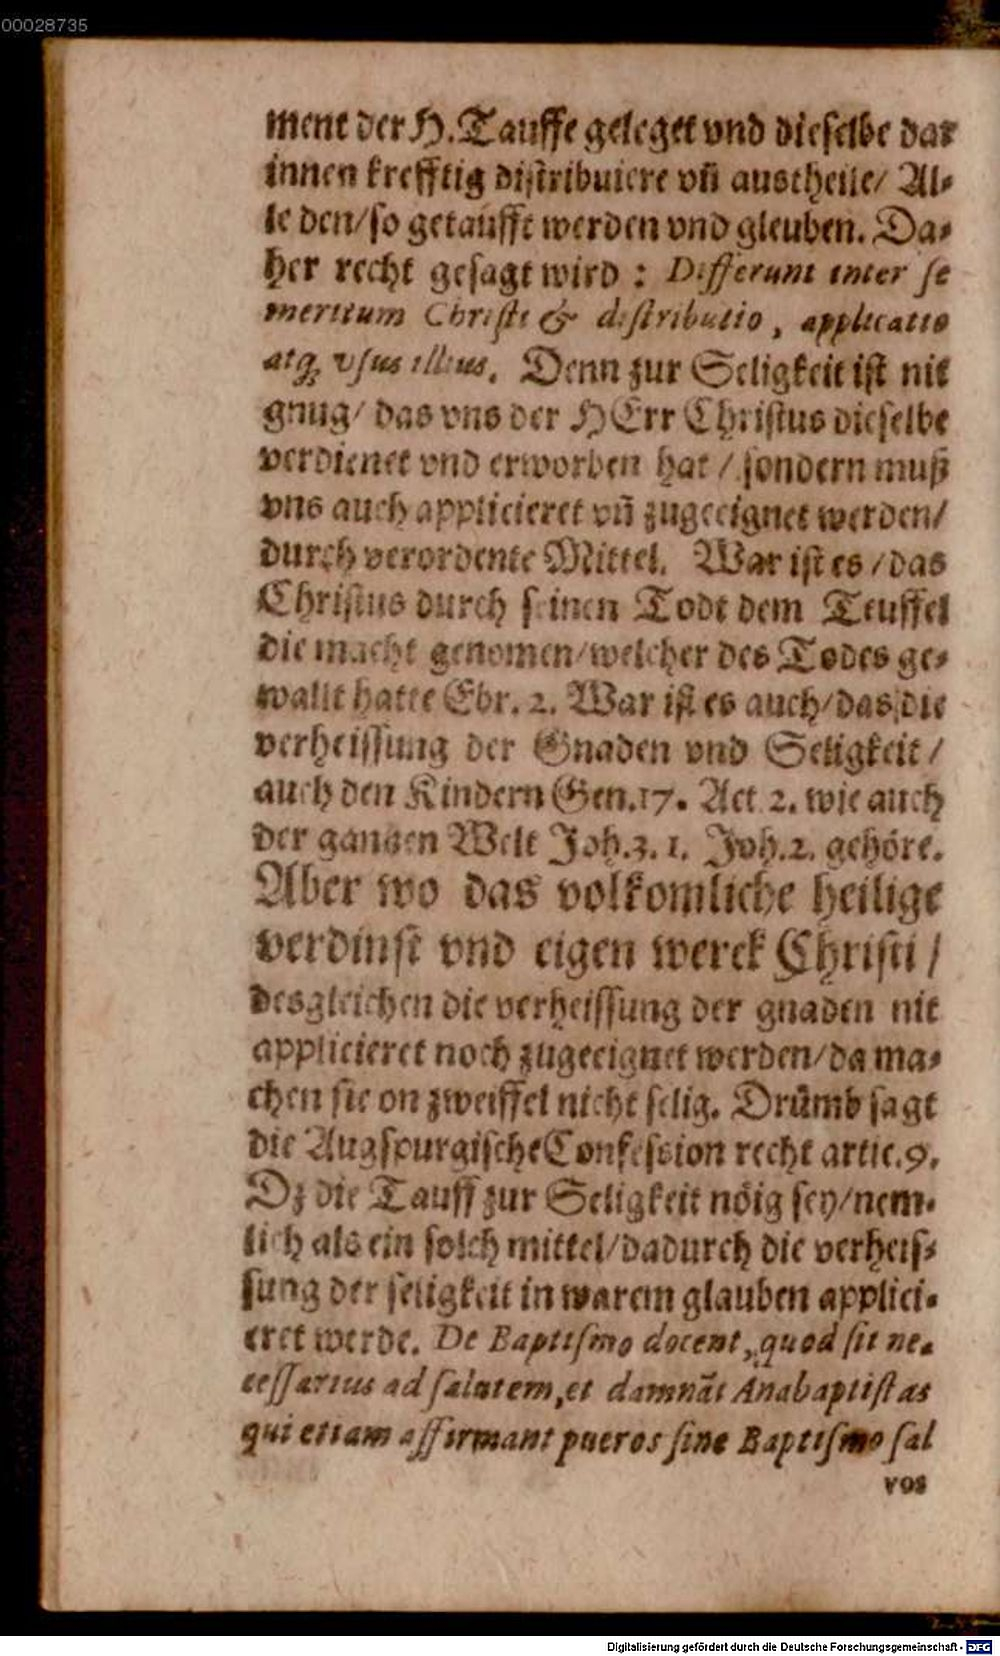 00028735
ment der H. Tauffe geleget vnd dieselbe dar
innen krefftig distribuiere vñ austheile/ Al⸗
le den/so getaufft werden vnd gleuben. Da⸗
her recht gesagt wird : Differunt inter se
meritum Christi & distributio, applicatio
atq; vsus illius. Denn zur Seligkeit ist nit
gnug/ das vns der HErr Christus dieselbe
verdienet vnd erworben hat / sondern muß
vns auch applicieret vñ zugeeignet werden/
durch verordente Mittel. War ist es /das
Christus durch seinen Todt dem Teuffel
die macht genomen/welcher des Todes ge⸗
wallt hatte Ebr. 2. War ist es auch/das die
verheissung der Gnaden vnd Seligkeit /
auch den Kindern Gen.17. Act. 2. wie auch
der gantzen Welt Joh.3. 1. Joh.2. gehöre.
Aber wo das volkomliche heilige
verdinst vnd eigen werck Christi /
desgleichen die verheissung der gnaden nit
applicieret noch zugeeignet werden/da ma⸗
chen sie on zweiffel nicht selig. Drümb sagt
die Augspurgische Confession recht artic.9.
Dz die Tauff zur Seligkeit nöig sey/nem⸗
lich als ein solch mittel/dadurch die verheis⸗
sung der seligkeit in warem glauben applici⸗
eret werde. De Baptismo docent, quod sit ne⸗
cessarius ad salutem, et damnāt Anabaptistas
qui etiam affirmant pueros sine Baptismo sal
vos
Digitalisierung gefördert durch die Deutsche Forschungsgemeinschaft - DFG